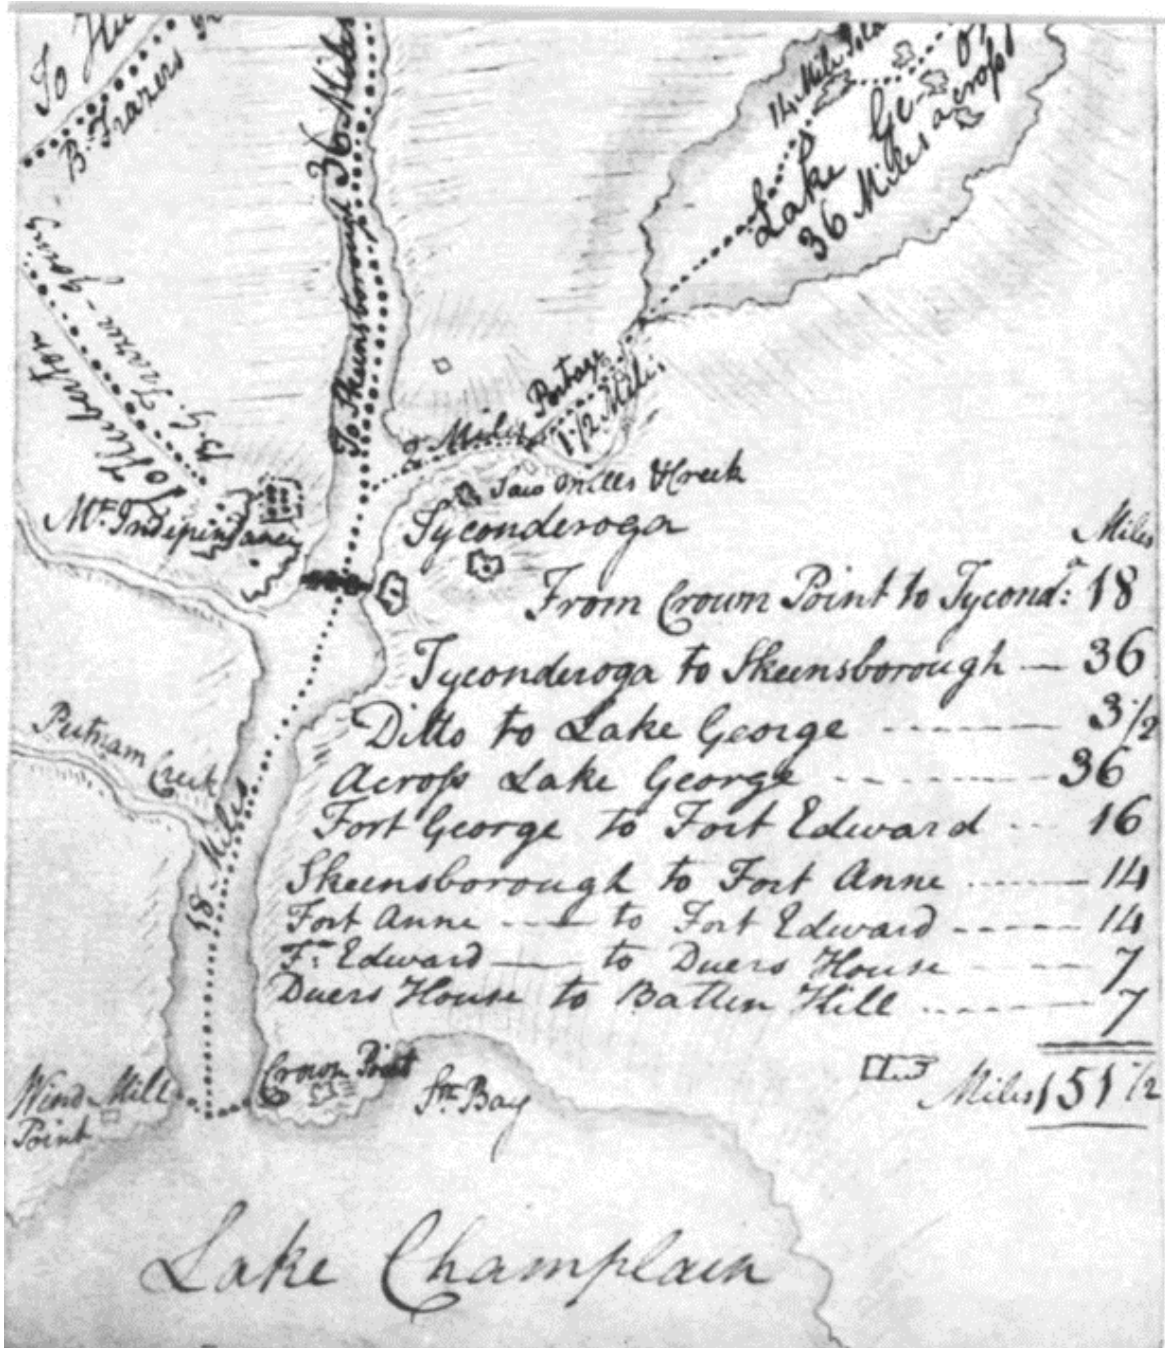 To Hu
B. Frazers
36 Miles
To Skeensborough
14 Mile Isla
Lake Ge- or
36 Miles across
To Hubarton
B. G. Frazer - going
2 Miles
Portage
1 1/2 Miles
Saw Mills & Creek
Mt Independance
Tyconderoga
Miles
From Crown Point to Tycond.a: 18
Tyconderoga to Skeensborough — 36
Ditto to Lake George ------- 3 1/2
Across Lake George ------- 36
Fort George to Fort Edward -- 16
Skeensborough to Fort Anne ------ 14
Fort Anne ---- to Fort Edward ----- 14
Ft: Edward —— to Duers House - - - 7
Duers House to Batten Kill ------ 7
Miles 151 1/2
Putnam Creek
18 Miles
Wind Mill
Point
Crown Point
Sth Bay
Lake Champlain